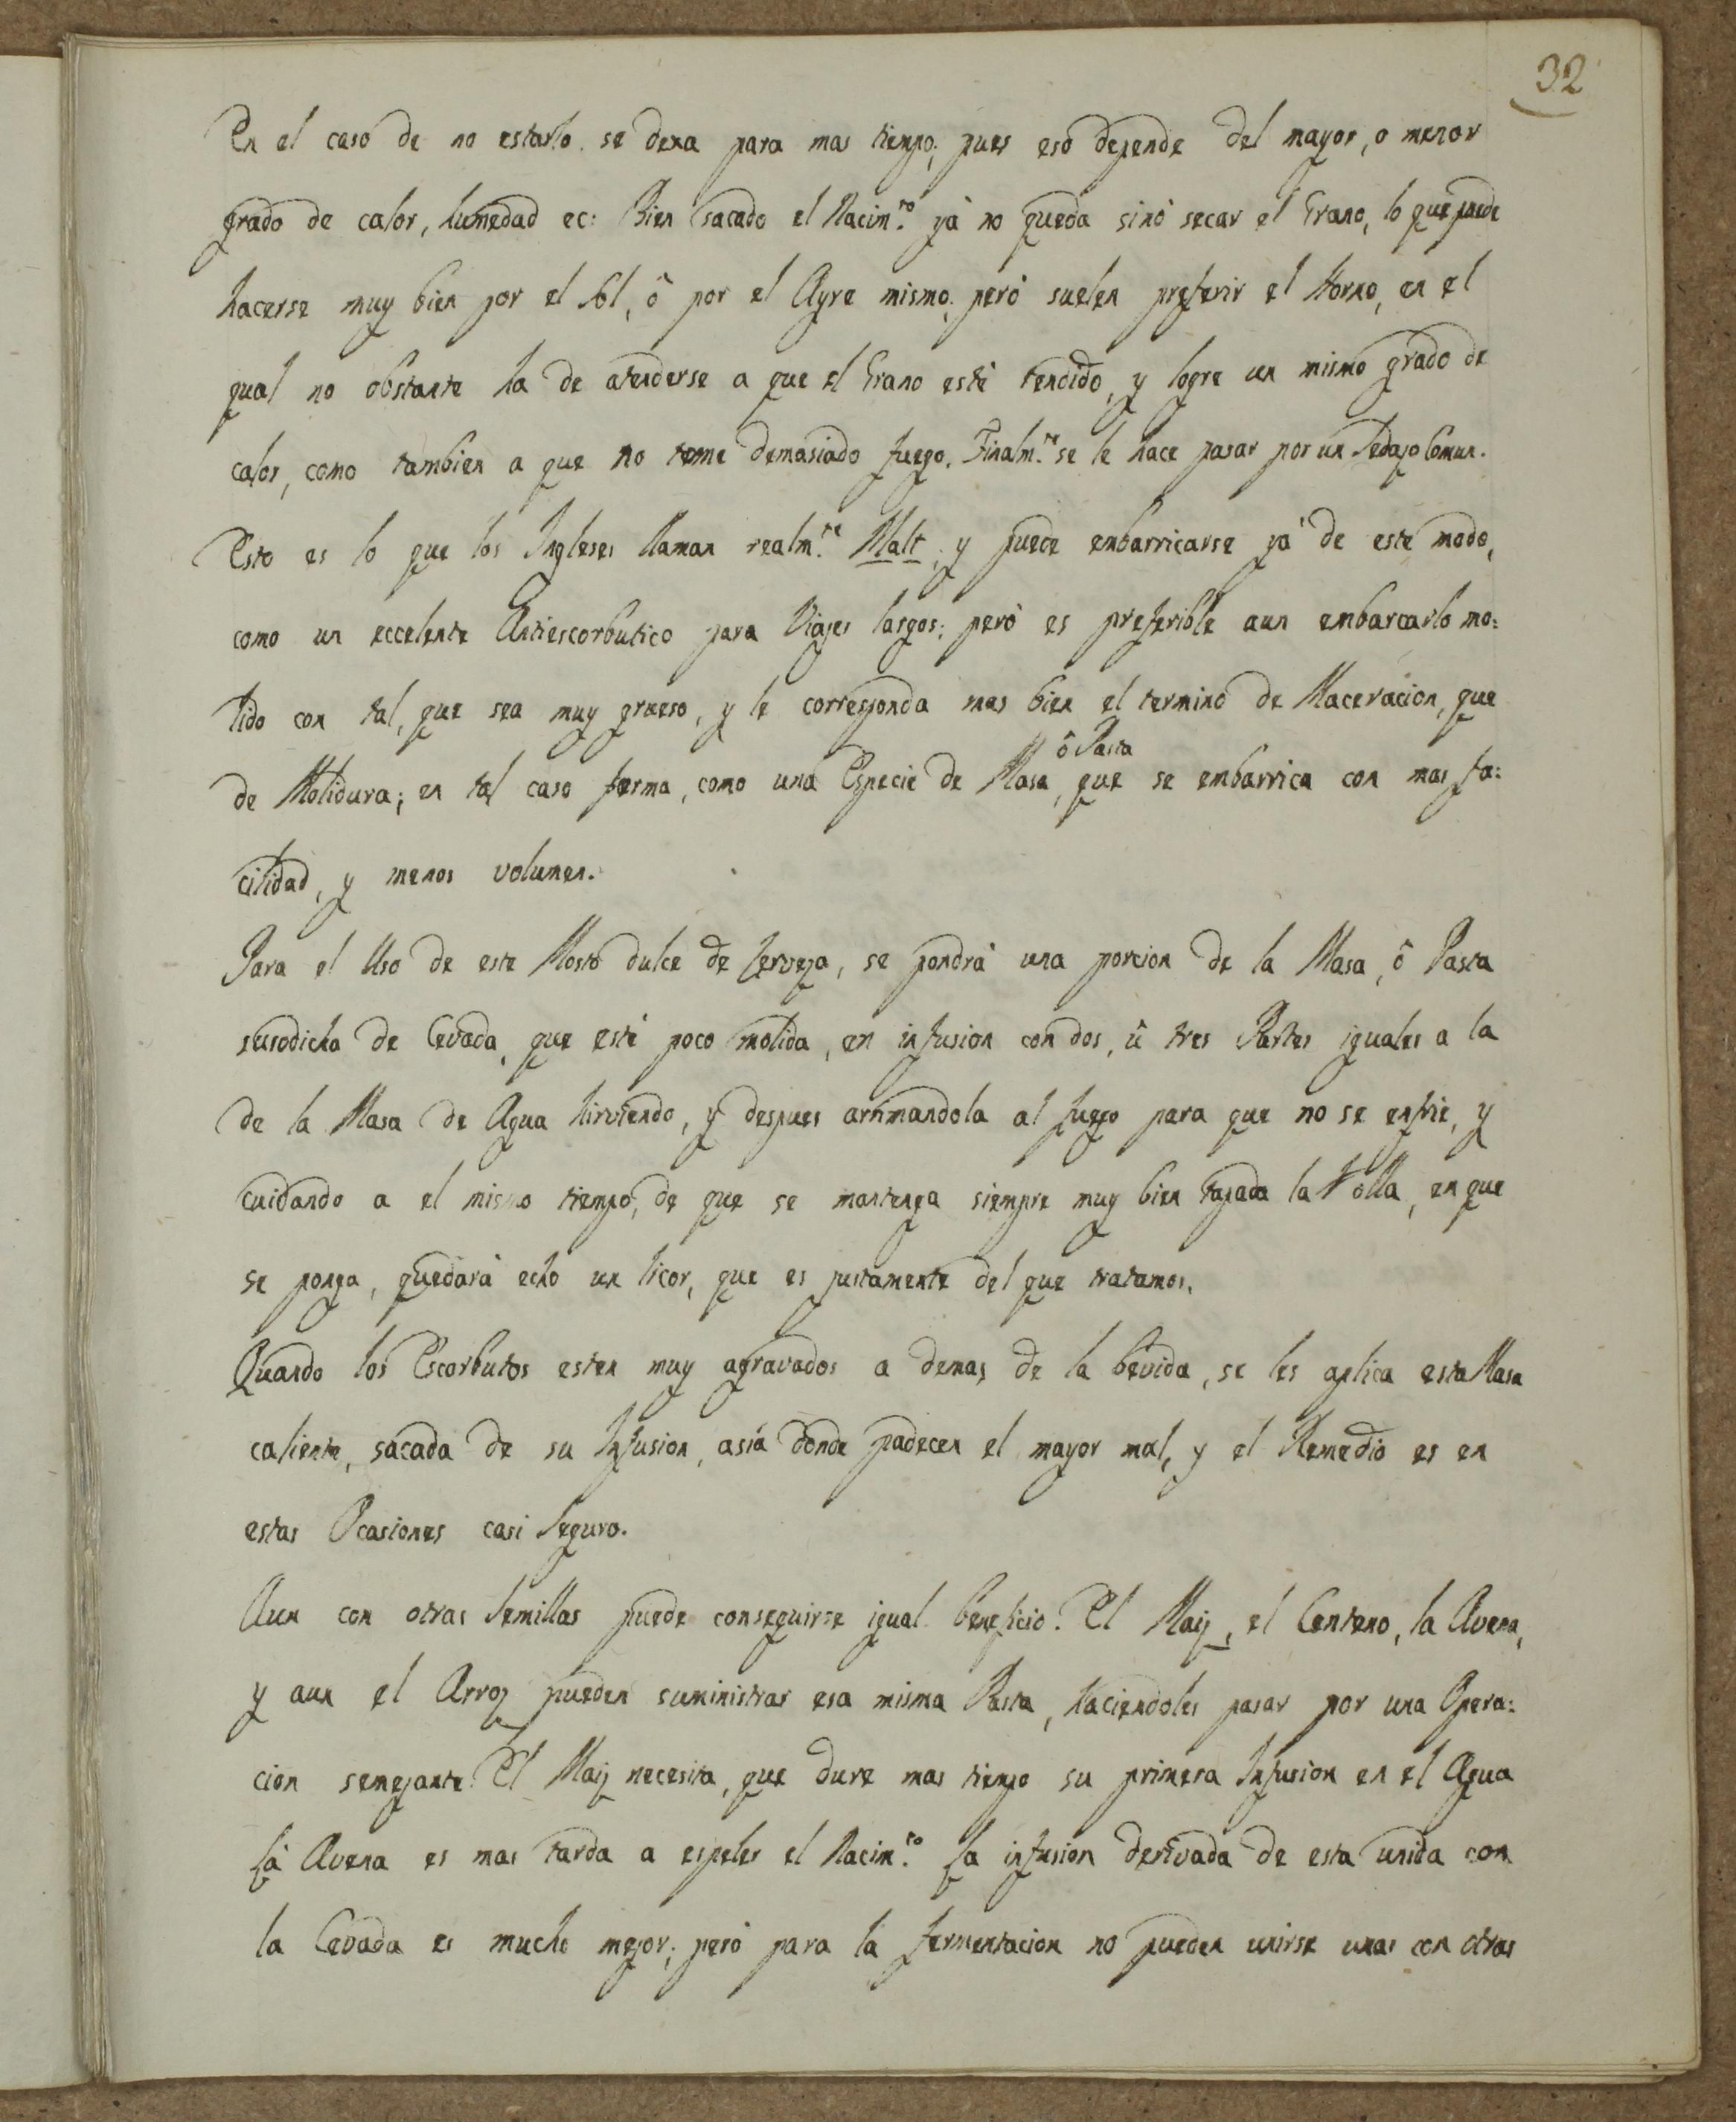 32
En el caso de no estarlo se dexa para mas tiempo; pues eso depende del mayor, o menor
grado de calor, humedad ec: Bien sacado el Nacim.to yà no queda sinò secar el Grano, lo que puede
hacerse muy bien por el Sol, ô por el Ayre mismo; però suelen preferir el Horno, en el
qual no obstante ha de atenderse a que el Grano estè tendido, y logre un mismo grado de
calor, como tambien a que no tome demasiado fuego. Finalm.te se le hace pasar por un Sedajo Comun.
Esto es lo que los Ingleses llaman realm.te Malt; y puede embarricarse yà de este modo,
como un eccelente Antiescorbutico para Viajes largos; però es preferible aun embarcarlo mo:
lido con tal, que sea muy grueso, y le corresponda mas bien el termino de Maceracion, que
ô Pasta
de Molidura; en tal caso forma, como una Especie de Masa, que se embarrica con mas fa:
cilidad, y menos volumen.
Para el Uso de este Mosto dulce de Cerveza, se pondrà una porcion de la Masa, ô Pasta
susodicha de Cevada, que estè poco molida, en infusion con dos, û tres Partes iguales a la
de la Masa de Agua hirviendo, y despues arrimandola al fuego para que no se enfrie, y
cuidando a el mismo tiempo, de que se mantenga siempre muy bien tapada la olla, en que
se ponga, quedarà echo un licor, que es justamente del que tratamos.
Quando los Escorbutos esten muy agravados a demas de la bevida, se les aplica esta Masa
caliente, sacada de su Infusion, asia donde padecen el mayor mal, y el Remedio es en
estas Ocasiones casi Seguro.
Aun con otras Semillas puede conseguirse igual beneficio. El Maiz, el Centeno, la Avena,
y aun el Arroz pueden suministrar esa misma Pasta, haciendoles pasar por una Opera:
cion semejante. El Maiz necesita, que dure mas tiempo su primera Infusion en el Agua
La Avena es mas tarda a espeler el Nacim.to La infusion derivada de esta unida con
la Cevada es mucho mejor; però para la fermentacion no pueden unirse unas con otras